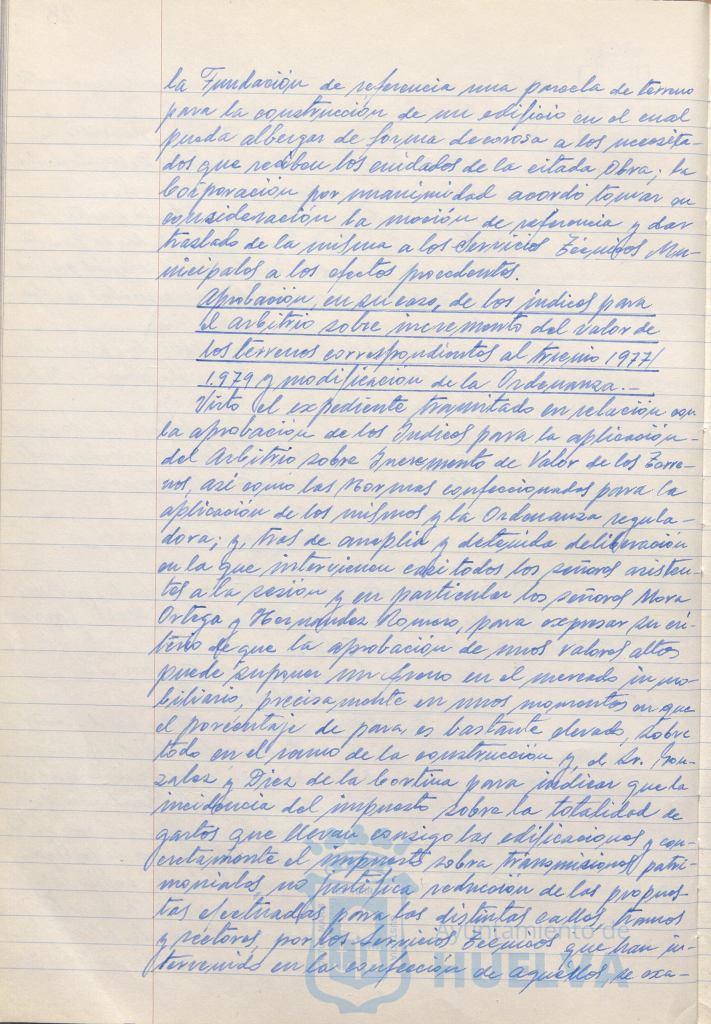 la Fundación de referencia una parcela de terreno
para la construcción de un edificio en el cual
pueda albergar de forma decorosa a los necesita-
dos que reciben los cuidados de la citada Obra; la
Corporación por unanimidad acordó tomar en
consideración la moción de referencia y dar
traslado de la misma a los Servicios Técnicos Mu-
nicipales a los efectos procedentes.
Aprobación, en su caso, de los índices para
el arbitrio sobre incremento del valor de
los terrenos correspondientes al trienio 1977/
1.979 y modificación de la Ordenanza.-
Visto el expediente tramitado en relación con
la aprobación de los Indices para la aplicación-
del Arbitrio sobre Incremento de Valor de los Terre-
nos, así como las Normas confeccionadas para la
aplicación de los mismos y la Ordenanza regula-
dora; y, tras de amplia y detenida deliberación
en la que intervienen casi todos los señores asisten-
tes a la sesión y en particular los señores Mora
Ortega y Hernández Romero, para expresar su cri-
terio de que la aprobación de unos valores altos
puede suponer un freno en el mercado inmo-
biliario, precisamente en unos momentos en que
el porcentaje de paro es bastante elevado, sobre
todo en el ramo de la construcción y, de Sr. Gon-
zalez y Diez de la Cortina para indicar que la
incidencia del impuesto sobre la totalidad de
gastos que llevan consigo las edificaciones y con-
cretamente el impuesto sobre transmisiones patri-
moniales no justifica reducción de las propues-
tas efectuadas para las distintas calles, tramos
y sectores, por los Servicios Técnicos que han in-
tervenido en la confección de aquéllos, se exa-
Ayuntamiento de
HUELVA